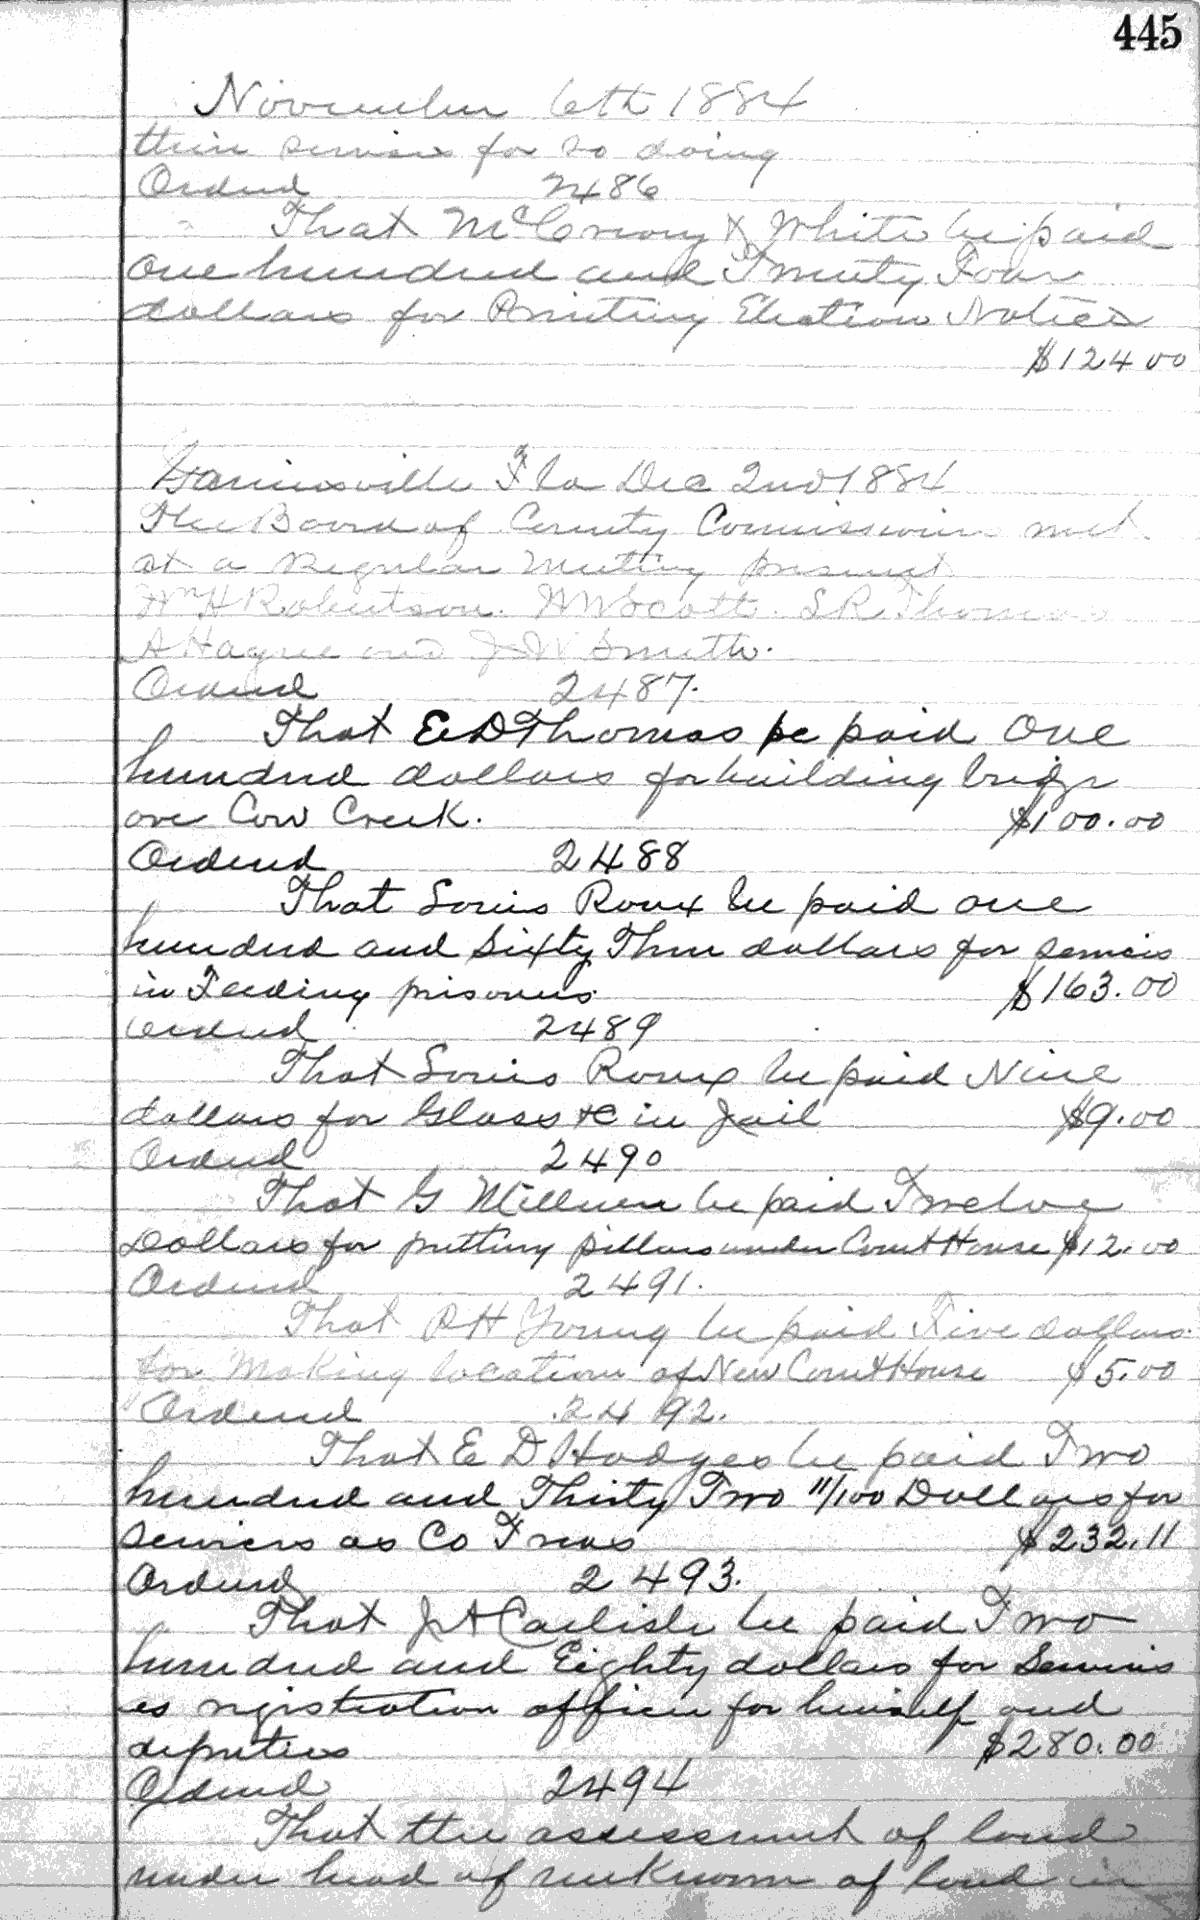 445
November 6th 1884
their services for so doing
Ordered 2486
That McCreary & White be paid
One hundred and Twenty Four
dollars for Printing Election Notices
$124 00
Gainesville Fla Dec 2nd 1884
The Board of County Commissioners met
at a Regular Meeting present
Wm H Robertson. H W Scott. S R Thomas
A Hague and J W Smith.
Ordered 2487.
That E D Thomas be paid One
hundred dollars for building bridge
over Cow Creek. $100.00
Ordered 2488
That Louis Roux be paid one
hundred and Sixty Three dollars for services
in Feeding prisoners. $163.00
Ordered 2489
That Louis Roux be paid Nine
dollars for Glass &c in Jail $9.00
Ordered 2490
That G be paid Twelve
Dollars for putting pillars under Court House $12.00
Ordered 2491.
That P H Young be paid Five dollars
for Making location of New Court House $5.00
Ordered 2492.
That E D Hodges be paid Two
hundred and Thirty Two 11/100 Dollars for
services as Co Treas $232.11
Ordered 2493.
That J A Carlisle be paid Two
hundred and Eighty dollars for Services
as registration officer for himself and
deputies $280.00
Ordered 2494
That the assessment of land
under head of unknown of land in